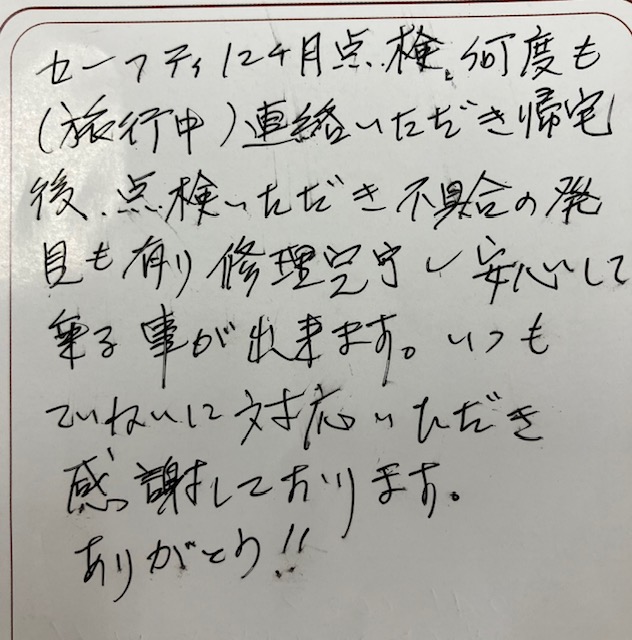 セーフティ12ヶ月点検、何度も
(旅行中)連絡いただき帰宅
後、点検いただき不具合の発
見も有り修理完守し安心して
乗る事が出来ます。いつも
ていねいに対応いただき
感謝しております。
ありがとう!!